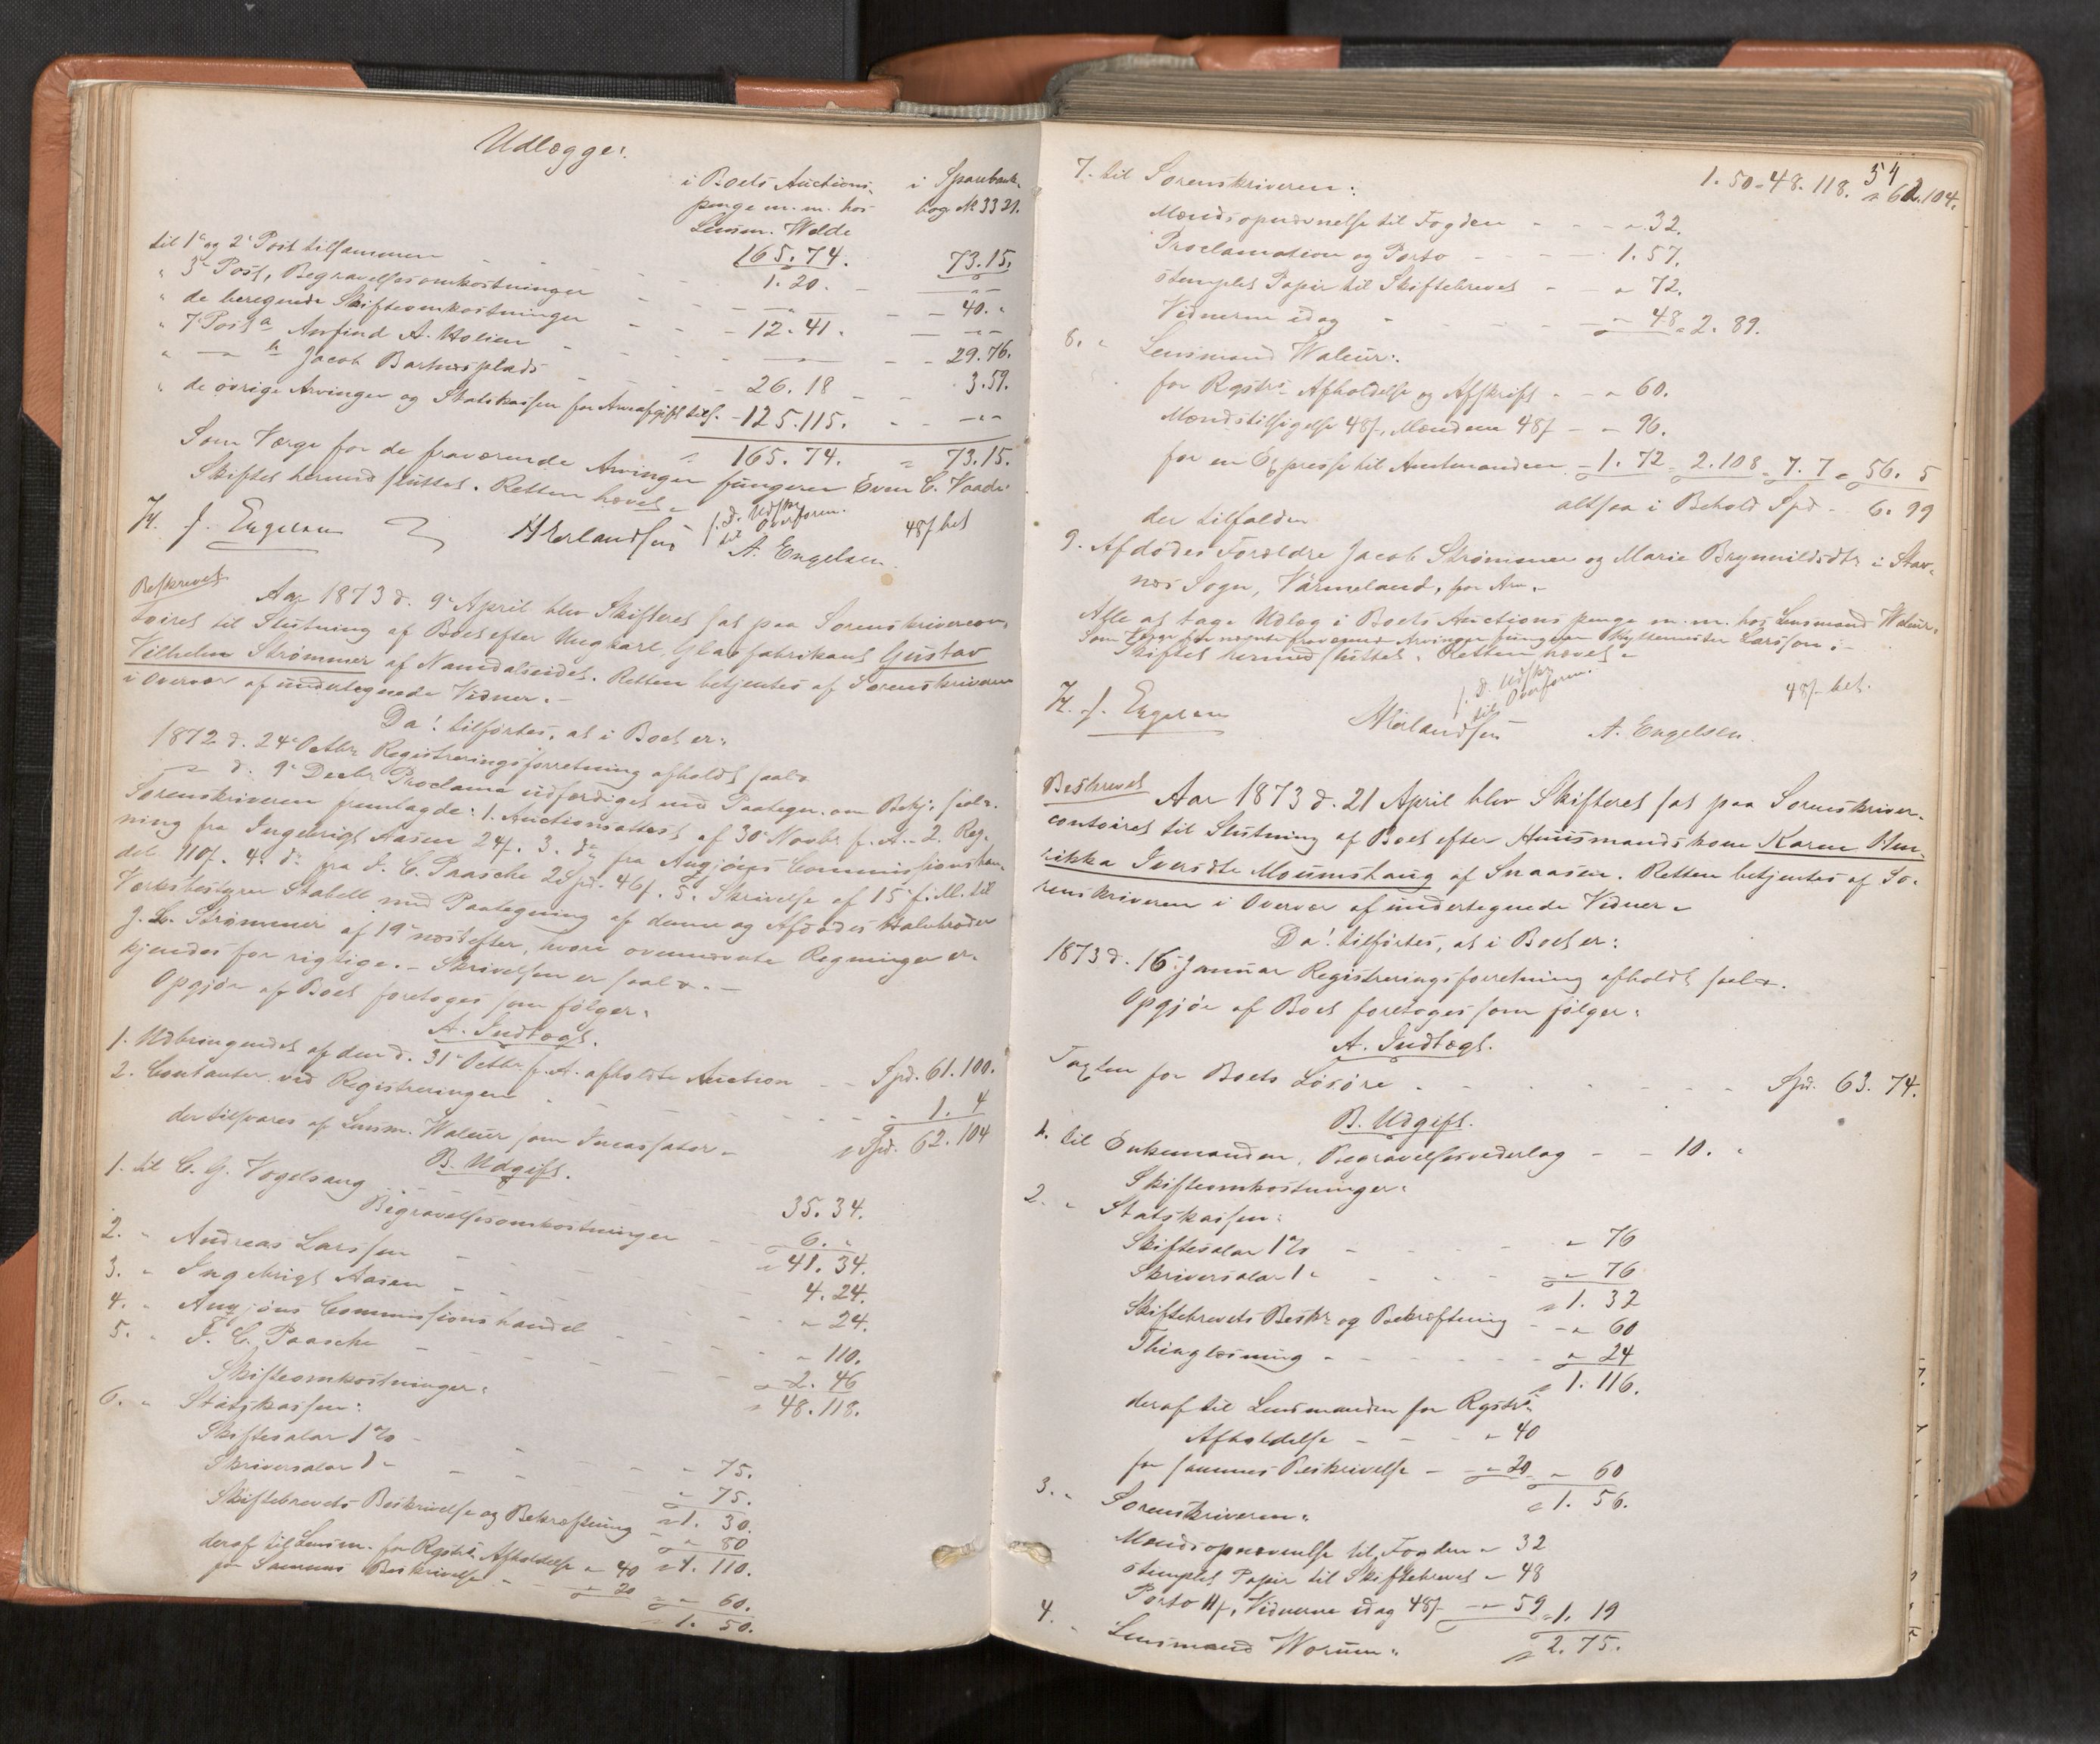 Udlægges:
i Boets Auctions- i Sparebank-
penge m. m. hos bog № 3321.
Lensm. Welde
til 1ᵉ og 2ᵉ Post tilsammen - - - 165.74. 73.15.
" 3ᵉ Post, Begravelsesomkostninger - - 1.20. - - "-"
" de beregnede Skifteomkostninger - - - "- - - 40. "
" 7ᵉ Post a Arnfind A. Holien - - - 12.41. - - "-"
" -"- b Jacob Barhusplads - - - "- - - 29.76.
26.18 - - 3.59.
" de øvrige Arvinger og Statskassen for Arveafgift tils. - 125.115. - - "-"
" 165.74. " 73.15.
Som Værge for de fraværende Arvinger fungerer Even C. Vaade.
Skiftet hermed sluttet. Retten hævet.
H. J. Engelsen H Erlandsen f. D. Udskr. til Overform. A. Engelsen. 48ß bet
Beskrevet
Aar 1873 d. 9ᵉ April blev Skifteret sat paa Sorenskrivercon-
toiret til Slutning af Boet efter Ungkarl, Glasfabrikant Gustav
Vilhelm Strømmer af Namdalseidet. Retten betjentes af Sorenskriveren
i Overvær af undertegnede Vidner. -
Da! tilførtes, at i Boet er:
1872 d. 24ᵉ Octbr. Registreringsforretning afholdt saal.
-"- d. 9ᵉ Decbr. Proclama udfærdiget med Paategn. om Bekj. saal.
Sorenskriveren fremlagde: 1. Auctionsattest af 30ᵉ Novbr. f. A. - 2. Reg-
ning fra Ingebrigt Aasen 24ß. 3. dᵒ fra Anzjøns Commissionshan-
del 110ß. 4. dᵒ fra F. C. Paasche 2 Spd. 46ß. 5. Skrivelse af 15ᵉ f. M. til
Værksbestyrer Stabell med Paategning af denne og Afdødes Halvbroder
J. L. Strømmer af 19ᵉ næstefter, hvori ovennævnte Regninger er-
kjendes for rigtige. - Skrivelsen er saal. -
Opgjør af Boet foretoges som følger:
A. Indtægt.
1. Udbringendet af den d. 31ᵉ Octbr. f. A. afholdte Auction - - Spd. 61.100.
2. Contanter ved Registreringen - - - - - - 1. 4
der tilsvares af Lensm. Waleur som Incassator - " Spd. 62.104
B. Udgift.
1. til C. G. Vogelsang - - - - 35.34.
Begravelsesomkostninger - 6. "
" 41.34.
2. " Andreas Larssen - - - 4.24.
3. " Ingebrigt Aasen - - - - " 24.
4. " Anzjøns Commissionshandel - - - " 110.
5. " F. C. Paasche - - - - - " 2. 46
" 48.118.
Skifteomkostninger:
6. " Statskassen:
Skiftesalær 1% - - - - " 75.
Skriversalær 1 " - - - - " 75.
" 1. 30.
Skiftebrevets Beskrivelse og Bekræftning - " 80
" 1. 110.
deraf til Lensm. for Regstr.s Afholdelse " 40
for Sammes Beskrivelse - - " 20 " " 60.
" 1. 50.
54
1.50 " 48.118. " 62.104.
7. til Sorenskriveren:
Mændsopnævnelse til Fogden - - - " 32.
Proclamation og Porto - - - - 1.57.
stemplet Papir til Skiftebrevet - - " 72.
Vidnerne idag - - - - " 48 " 2.89.
8. " Lensmand Waleur:
for Regstr.s Afholdelse og Afskrift - - " 60.
Mændstilsigelse 48ß, Mændene 48ß - - " 96.
for en Expresse til Amtmanden - 1. 72 " 2.108 " 7. 7 " 56. 5
altsaa i Behold Spd. - 6. 99
der tilfalder
9. Afdødes Forældre Jacob Strømmer og Marie Brynnildsdtr. i Stav-
næs Sogn, Värmeland, for Arv. -
Alle at tage Udlæg i Boets Auctionspenge m. m. hos Lensmand Waleur.
Som Værge for nævnte fraværende Arvinger fungerer Skyttemester Larsson. -
Skiftet hermed sluttet. Retten hævet. -
H. J. Engelsen H Erlandsen f. D. Udskr. til Overform. A. Engelsen. 48ß bet.
Beskrevet
Aar 1873 d. 21 April blev Skifteret sat paa Sorenskriver-
contoiret til Slutning af Boet efter Huusmandskone Karen Hen-
rikka Iversdtr Moumstaug af Snaasen. Retten betjentes af So-
renskriveren i Overvær af undertegnede Vidner. -
Da! tilførtes, at i Boet er:
1873 d. 16. Januar Registreringsforretning afholdt saal.
Opgjør af Boet foretoges som følger:
A. Indtægt.
Taxten for Boets Løsøre - - - - - - - Spd. 63. 74.
B. Udgift.
1. til Enkemanden, Begravelsesvederlag - - 10. "
Skifteomkostninger:
2. " Statskassen:
Skiftesalær 1% - - - - " 76
Skriversalær 1 " - - - " 76
" 1. 32
Skiftebrevets Beskr. og Bekræftning - " 60
Thinglæsning - - - - - " 24
" 1. 116.
deraf til Lensmanden for Regstr.s
Afholdelse - - - " 40
for sammes Beskrivelse - " 20 " 60
" 1. 56.
3. " Sorenskriveren:
Mændsopnævnelse til Fogden " 32
stemplet Papir til Skiftebrevet " 48
Porto 11ß, Vidnerne idag 48ß " 59 " 1. 19
" 2. 75.
4. " Lensmand Worum: